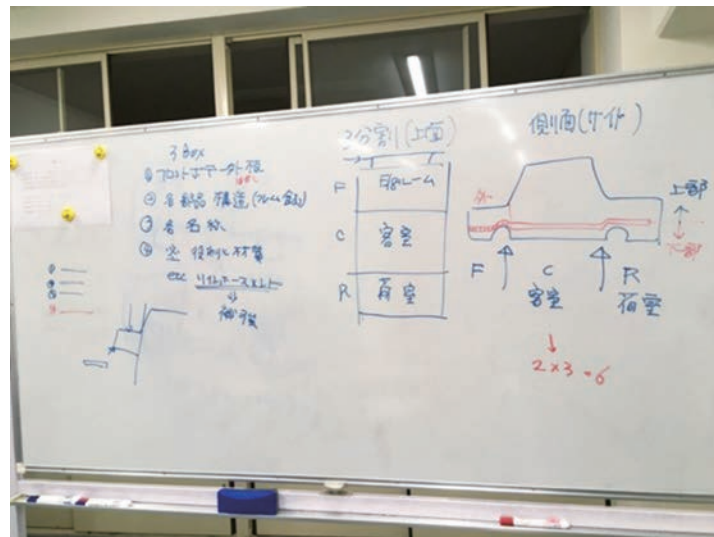 3 Box
① フロントボデー外板
② 各部品 構造(フレーム含む)
③ 各名称
④ 役割と材質
etc リインホースメント
⇓
補強
①
②
③
3分割(上面)
F
E/gルーム
C
客室
R
荷室
側面(サイド)
上部
下部
F
C
客室
R
荷室
2×3=6